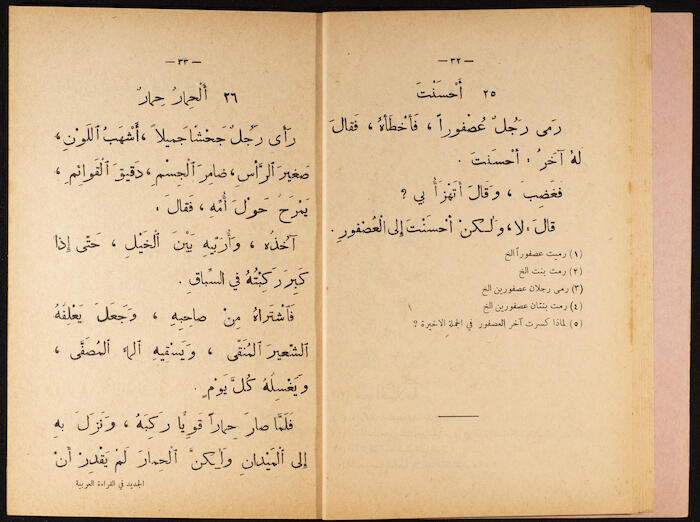 — ٣٢ —
٢٥ أَحْسَنْتَ
رَمى رَجُلٌ عُصْفوراً ، فَأَخْطَأَهُ ، فَقالَ
لَهُ آخَرُ : أَحْسَنْتَ .
فَغَضِبَ ، وَقالَ أَتَهْزَأُ بي ؟
قالَ : لا ، وَلٰكِنْ أَحْسَنْتَ إِلى العُصْفورِ .
(١) رميت عصفوراً الخ
(٢) رمت بنت الخ
(٣) رمى رجلان عصفورين الخ
(٤) رمت بنتان عصفورين الخ
(٥) لماذا كسرت آخر العصفور في الجملة الاخيرة ؟
— ٣٣ —
٢٦ أَلْحِمارُ حِمارٌ
رَأى رَجُلٌ جَحْشاً جَميلاً ، أَشْهَبَ اللَّوْنِ ،
صَغيرَ الرَّأْسِ ، ضامِرَ الْجِسْمِ ، دَقيقَ الْقَوائِمِ ،
يَمْرَحُ حَوْلَ أُمِّهِ ، فَقالَ :
آخُذُهُ ، وَأُرَبّيهِ بَيْنَ الْخَيْلِ ، حَتّى إِذا
كَبِرَ رَكِبْتُهُ في السِّباقِ .
فَاشْتَراهُ مِنْ صاحِبِهِ ، وَجَعَلَ يَعْلِفُهُ
الشَّعيرَ الْمُنَقّى ، وَيَسْقيهِ الماءَ الْمُصَفّى ،
وَيَغْسِلُهُ كُلَّ يَوْمٍ .
فَلَمّا صارَ حِماراً قَوِيّاً رَكِبَهُ ، وَنَزَلَ بِهِ
إِلى الْمَيْدانِ وَلٰكِنَّ الْحِمارَ لَمْ يَقْدِرْ أَنْ
الجديد في القراءة العربية